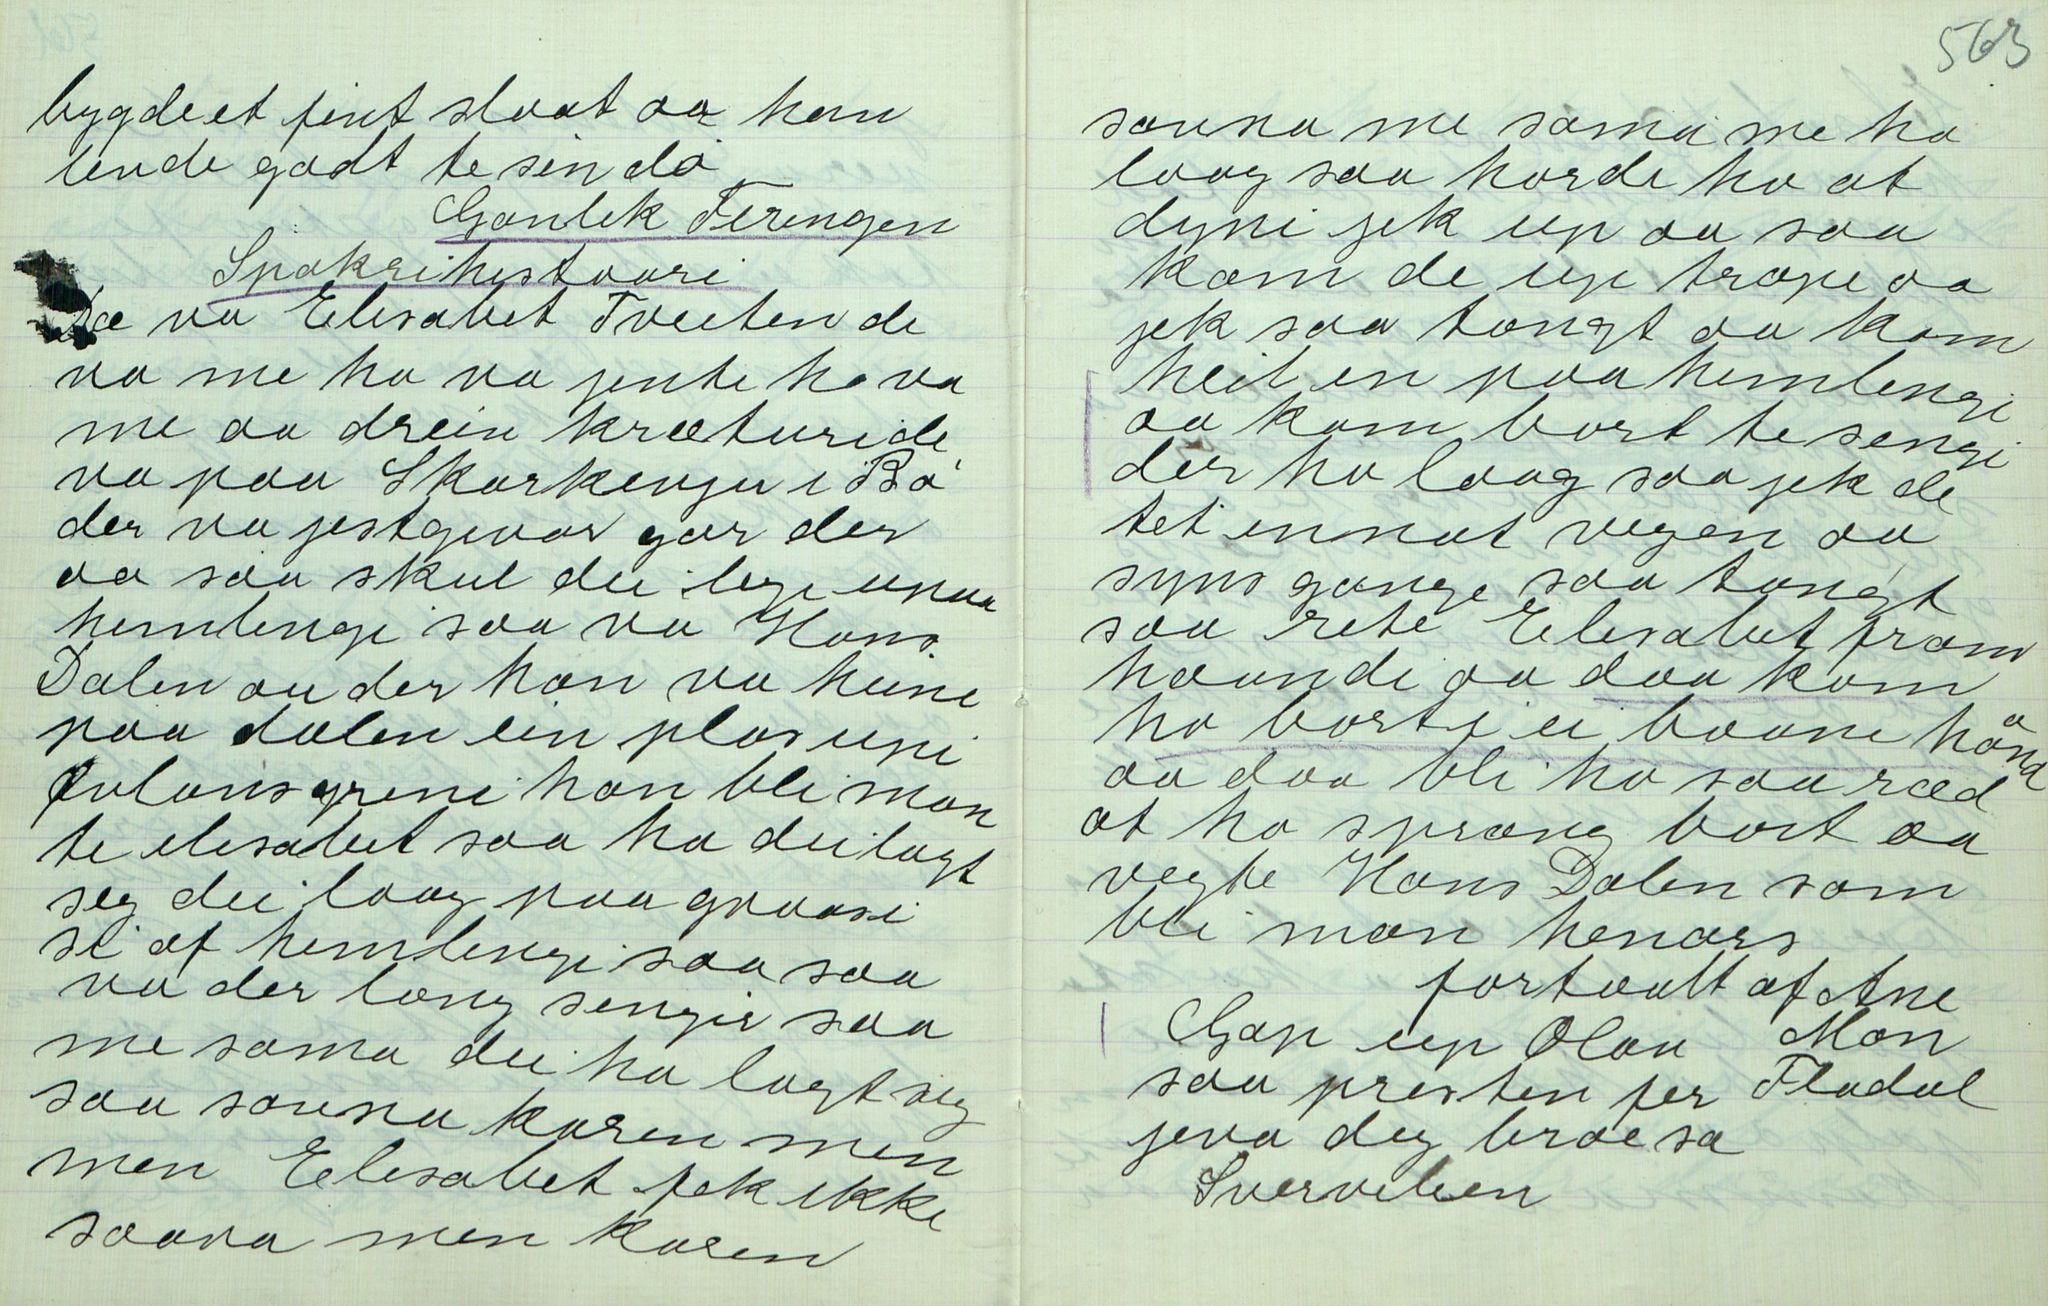 bygde et fint slaat aa han
levde godt te sin dø
Gonlek Feringen
Spøkri histaari
Dæ va Elisabet Tveiten de
va me ho va jente ho va
me aa drein kræturi de
va paa Skarkenju i Bø
der va jestgivar gar der
aa saa skul dei lige upaa
hemlengi saa va Hans
Dalen au der han va heime
paa dalen ein plas upi
han blei man
te elesabet saa ha dei lagt
seg dei laag paa graasi
si af hemlengi saa saa
va der lang sengir saa
me sama dei ha lagt seg
saa souna karen men
men Elesabet fek ikke
saava men karen
563
souna me sama me ho
laag saa hørde ho at
dyni jek up aa saa
kom de up trapi aa
jek saa tongt aa kom
heil en paa hemlengi
aa kom bort te sengi
der ho laag saa jek de
tet innat vegen aa
syns gange saa tongt
saa rete Elesabet fram
haandi aa daa kom
ho borti ei baane hånd
aa daa blei ho saa ræd
at ho sprang bort aa
vegte Hans Dalen som
blei man henars
fortaalt af Ane
Gap up Olav Mon
saa presten fer Flødal
jeva deg brøe sa
Svervelien